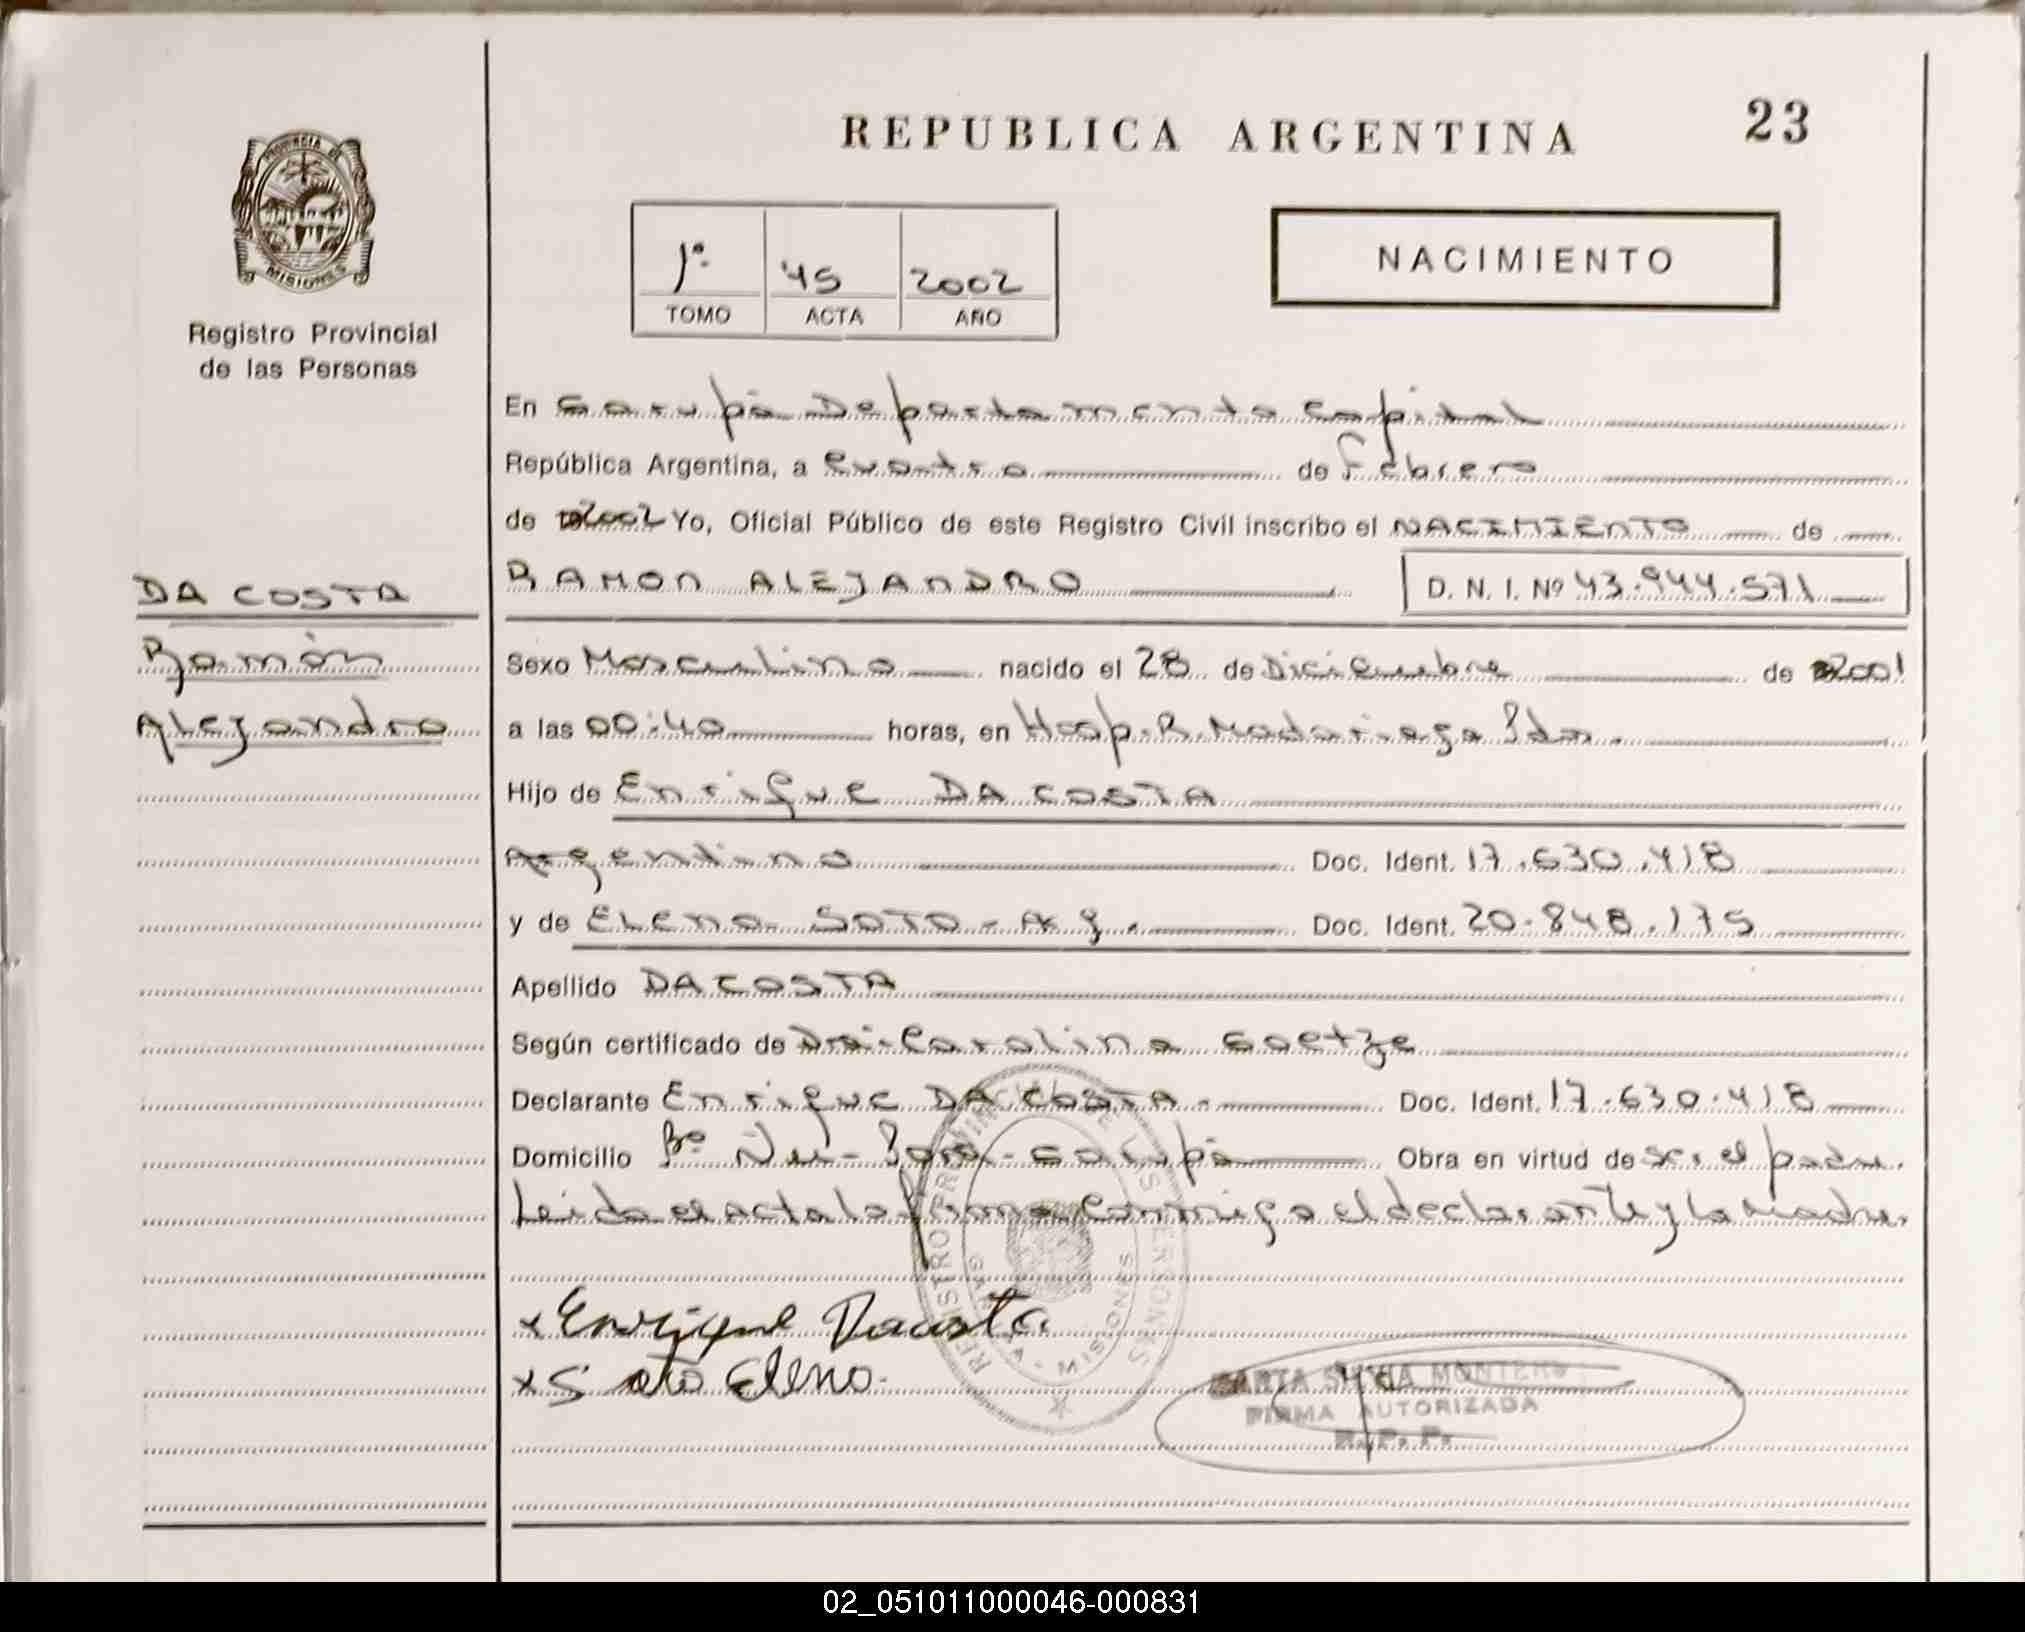 REPUBLICA ARGENTINA
23
PROVINCIA DE
MISIONES
Registro Provincial
de las Personas
1º 45 2002
TOMO ACTA AÑO
NACIMIENTO
En Garupá Departamento Capital
República Argentina, a cuatro de Febrero
de 2002 Yo, Oficial Público de este Registro Civil inscribo el NACIMIENTO de
RAMON ALEJANDRO D. N. I. Nº 43.944.571
DA COSTA
Ramón
Alejandro
Sexo Masculino nacido el 28 de Diciembre de 2001
a las 00:40 horas, en Hosp. R. Madariaga Pdas.
Hijo de Enrique DA COSTA
Argentino Doc. Ident. 17.630.418
y de ELENA SOTO - Arg. Doc. Ident. 20.848.175
Apellido DA COSTA
Según certificado de Dra. Carolina Goetze
Declarante Enrique DA COSTA.- Doc. Ident. 17.630.418
Domicilio Bº Ñu - Porá - Garupá Obra en virtud de ser el padre.
Leida el acta la firma conmigo el declarante y la Madre.
REGISTRO PROVINCIAL DE LAS PERSONAS
MISIONES
x Enrique Dacosta
x Soto Elena.
MONTERO
FIRMA AUTORIZADA
R. P. P.
02_051011000046-000831